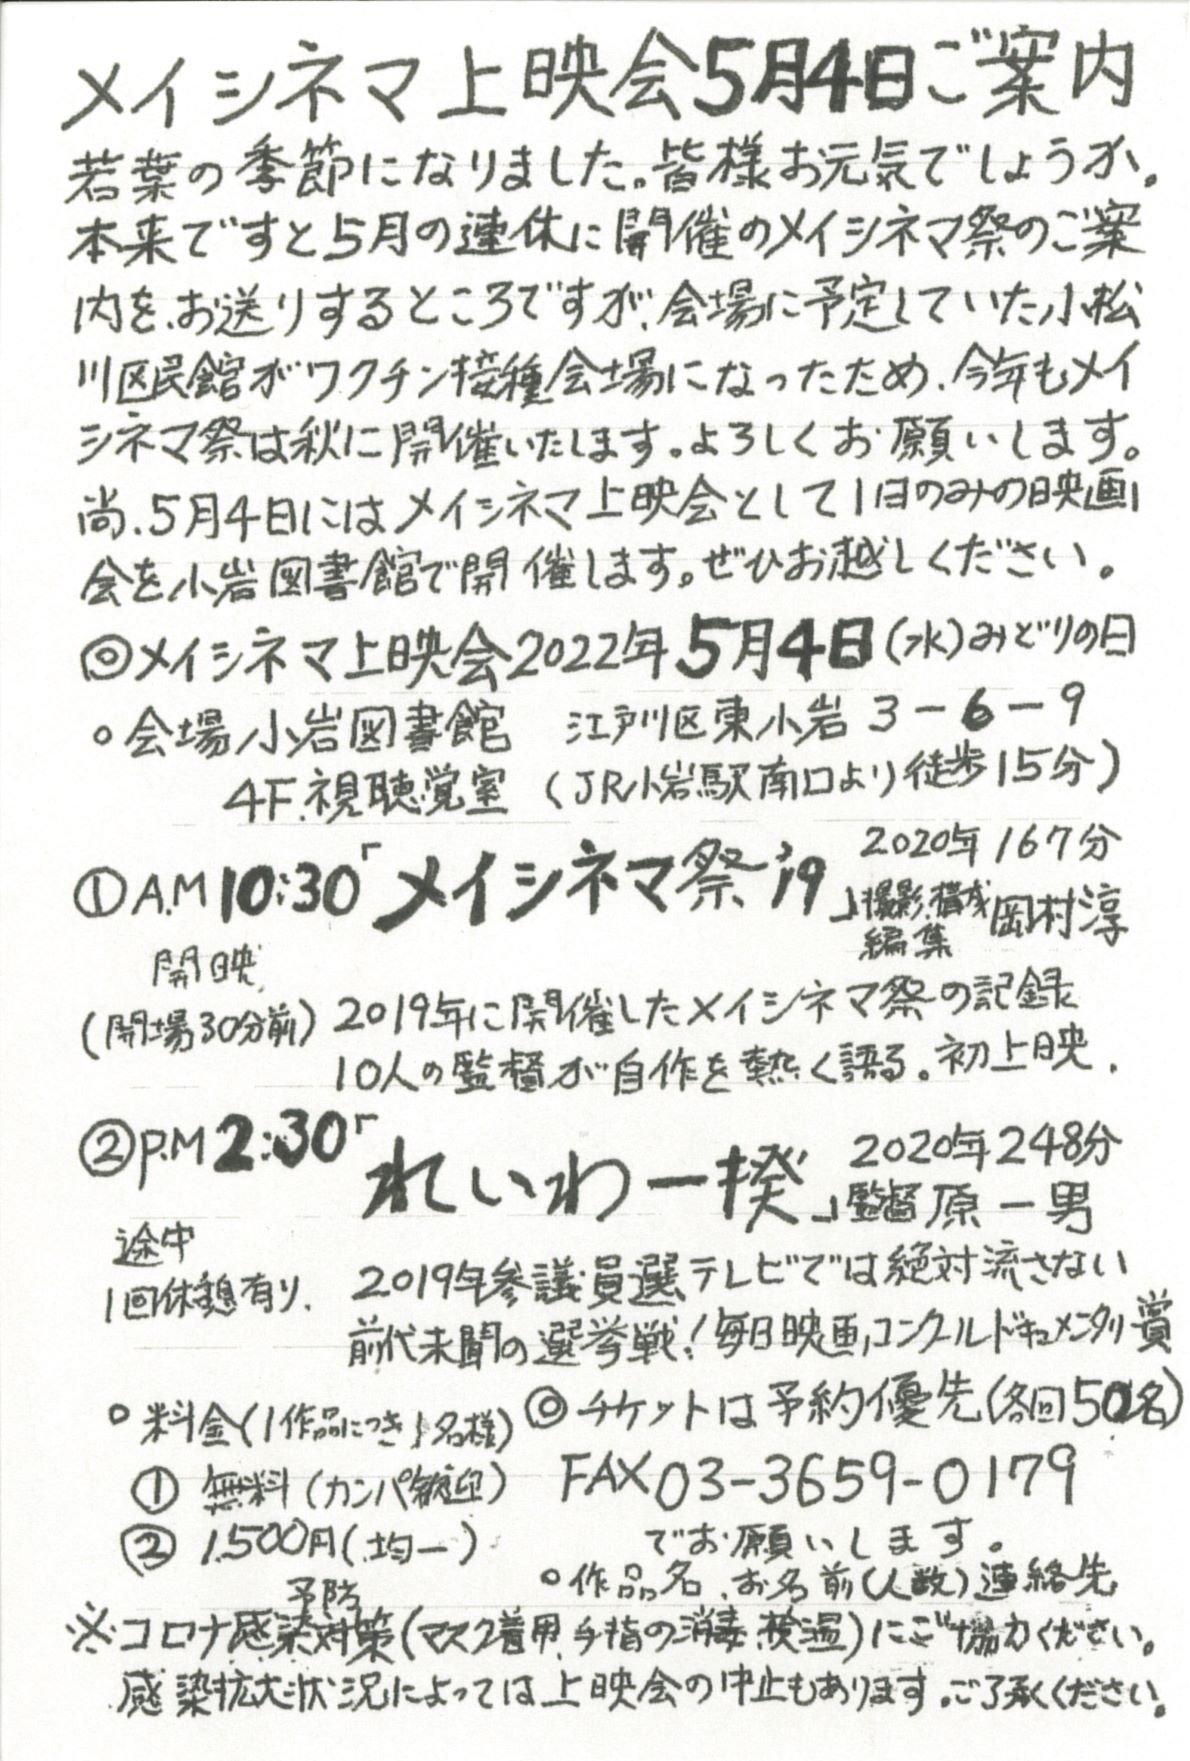 メイシネマ上映会5月4日ご案内
若葉の季節になりました。皆様お元気でしょうか。
本来ですと5月の連休に開催のメイシネマ祭のご案
内を、お送りするところですが、会場に予定していた小松
川区民館がワクチン接種会場になったため、今年もメイ
シネマ祭は秋に開催いたします。よろしくお願いします。
尚、5月4日にはメイシネマ上映会として1日のみの映画
会を小岩図書館で開催します。ぜひお越しください。
◎メイシネマ上映会2022年5月4日(水)みどりの日
○会場 小岩図書館 江戸川区東小岩3-6-9
4F.視聴覚室 (JR小岩駅南口より徒歩15分)
①A.M10:30「メイシネマ祭'19」2020年167分
撮影.構成 岡村淳
編集
開映
(開場30分前) 2019年に開催したメイシネマ祭の記録
10人の監督が自作を熱く語る。初上映.
②P.M2:30「れいわ一揆」2020年248分
監督 原一男
途中
1回休憩有り. 2019年参議員選、テレビでは絶対流さない
前代未聞の選挙戦!毎日映画コンクールドキュメンタリ賞
○料金(1作品につき1名様) ◎チケットは予約優先(各回50名)
① 無料(カンパ歓迎) FAX03-3659-0179
② 1.500円(均一) でお願いします。
○作品名、お名前(人数)連絡先
予防
※コロナ感染対策(マスク着用、手指の消毒、検温)にご協力ください。
感染拡大状況によっては上映会の中止もあります。ご了承ください。